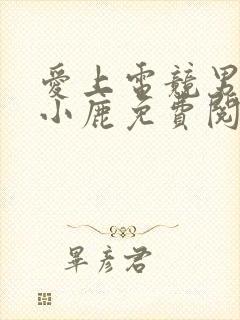 愛上電競男
小鹿免費閱
畢彥君